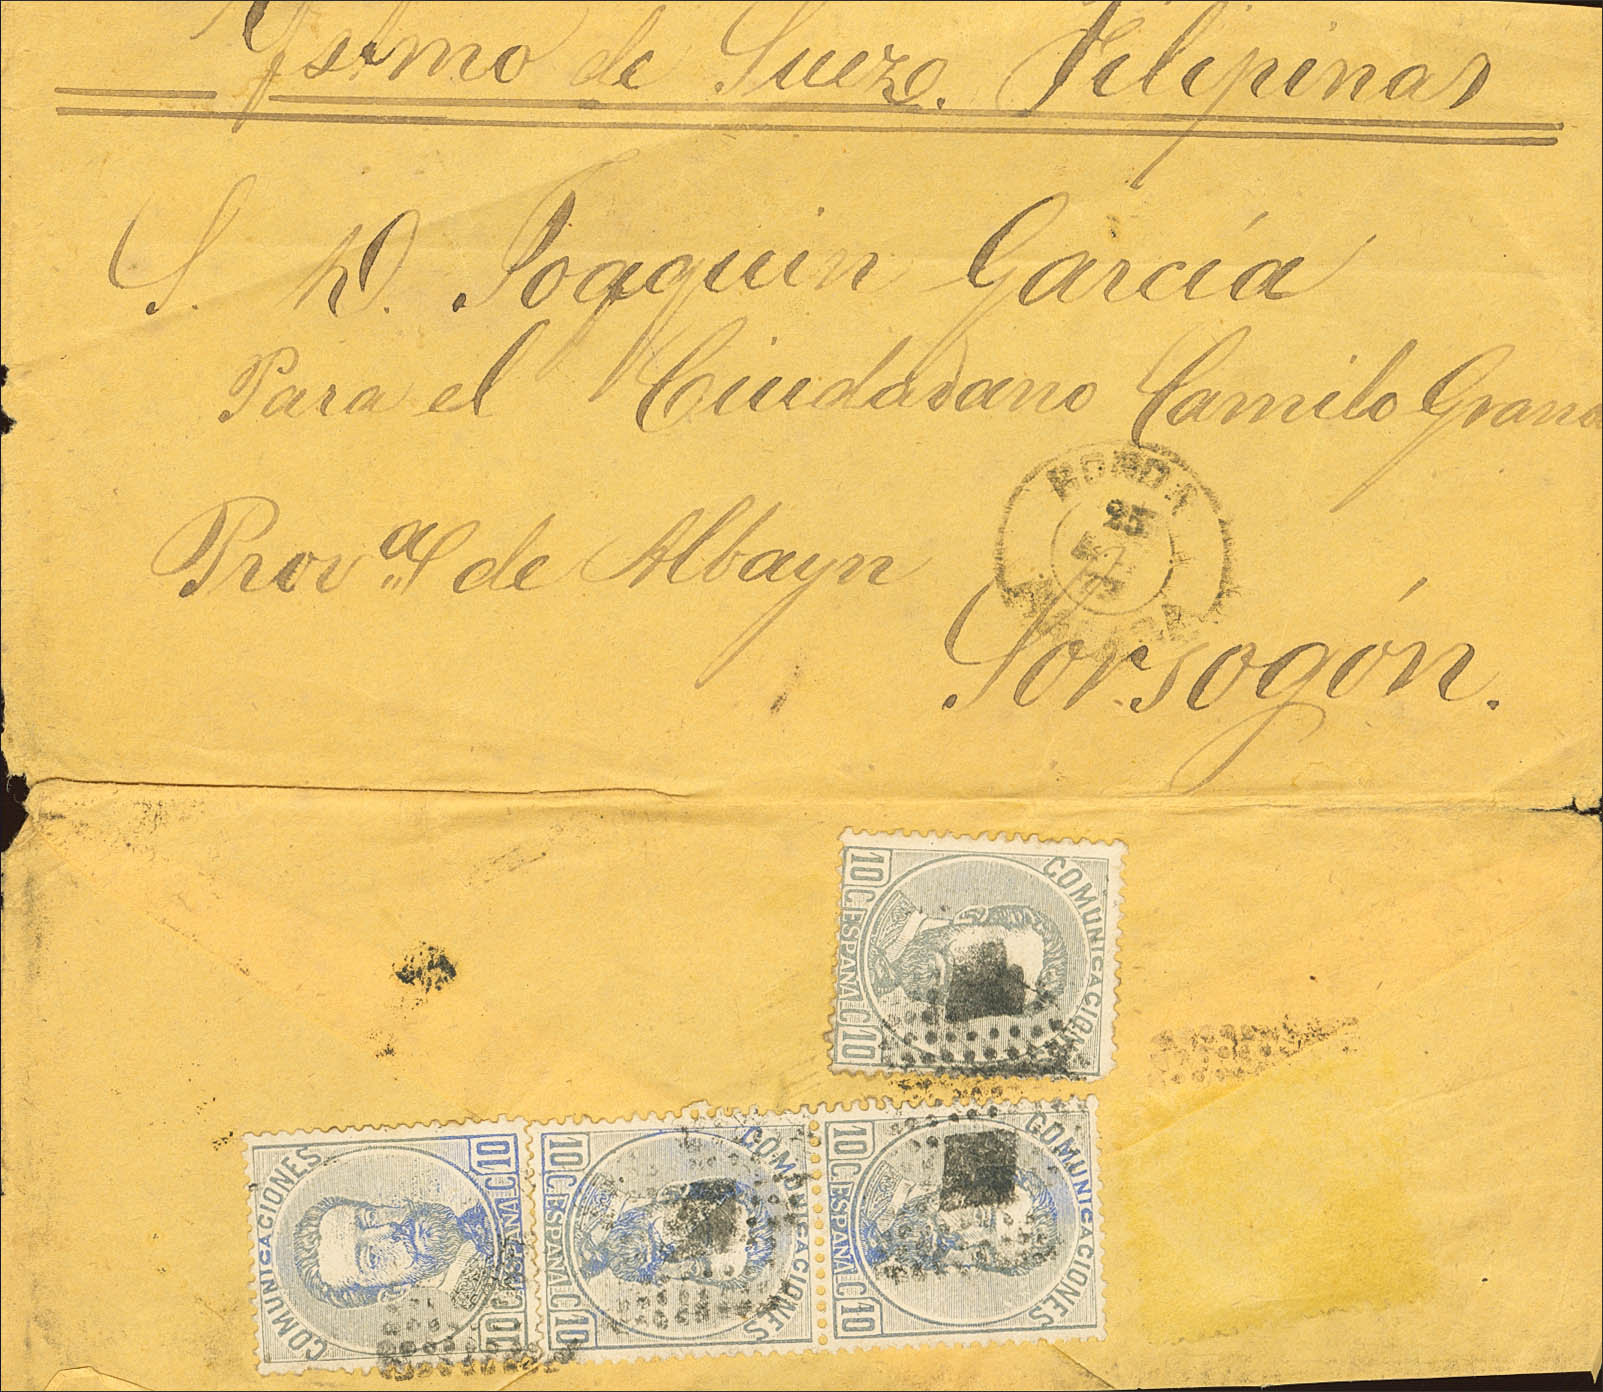 Ystmo de Suez. Filipinas
S. D. Joaquin García
Para el Ciudadano Camilo Grana
Prov.al de Albayn
RONDA
25
Sorsogón.
COMUNICACIONES
10 C. ESPAÑA C. 10
COMUNICACIONES
10 C. ESPAÑA C. 10
COMUNICACIONES
10 C. ESPAÑA C. 10
COMUNICACIONES
10 C. ESPAÑA C. 10